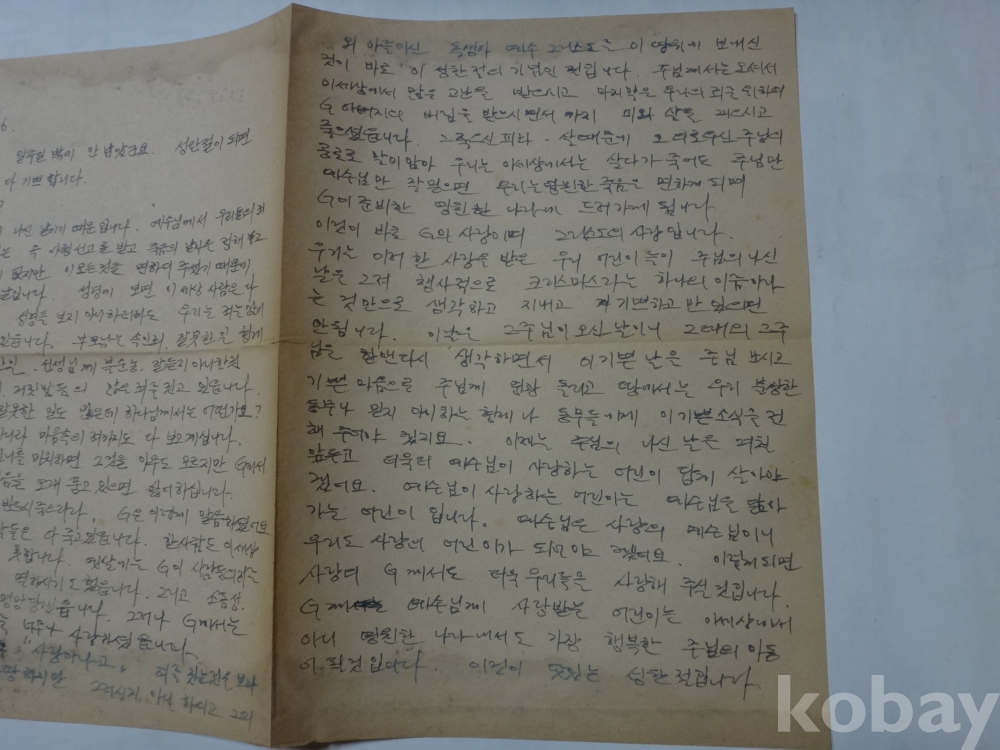 6.
일주일 밖이 안 남았군요. 성탄절이 되면
다 기쁘합니다.
나신 날이기 때문입니다. 예수님께서 우리들의 죄
는 주 사형선고를 받고 죽음의 날짜은 정해 놓고
없지만 이 모든것을 면하여 주셨기 때문에
날입니다. 성경에 보면 이 세상 사람은 다
성경을 보지 아니하더라도 우리는 죄는 있게
있습니다. 부모님을 속인죄, 잘못한 일 형제
선생님께 불순종, 말듣지 아니한죄
거짓말등의 많은 죄를 짓고 있읍니다.
잘못한 일도 많은데 하나님께서는 어떤가요?
아니라 마음속의 죄까지도 다 보고계십니다.
하면 그것을 아무도 모르지만 G께서
음을 오래 품고 있으면 싫어하십니다.
반드시 죽으리라, G은 이렇게 말씀하셨어요
람들은 다 죽고 있읍니다. 한사람도 이 세상
못합니다. 옛날에는 G이 사람들의 죄를
멸하시기도 했읍니다. 그리고 소돔성.
멸망당했읍니다. 그러나 G께서는
너무나 사랑하셨읍니다.
사랑이라고.
하지만 그러시지 아니 하시고 그의
외 아들이신 독생자 예수 그리스도를 이 땅위에 보내신
것이 바로 이 성탄절의 기념인 것입니다. 주님께서는 오셔서
이세상에서 많은 고난을 받으시고 마지막은 우리의 죄를 위하여
G 아버지의 버림을 받으시면서 까지 피와 살을 찢으시고
죽으셨읍니다. 그 죽으신 피와 살때문에 오직 예수님 주님의
공로로 말미암아 우리는 이세상에서는 살다가 죽어도 주님만
예수님만 잘 믿으면 우리는 영원한 죽음을 면하게 되며
G이 준비한 영원한 나라에 드러가게 됩니다
이것이 바로 G의 사랑이며 그리스도의 사랑입니다.
우리는 이러한 사랑을 받은 우리 어린이들이 주님의 나신
날은 그저 행사적으로 크리스마스라는 하나의 이름이라
는 것만으로 생각하고 지내고 기쁘하고만 있으면
안됩니다. 이 날은 그 주님이 오신 날이니 그대의 그 주
님을 한번 다시 생각하면서 이 기쁜 날은 주님 모시고
기쁜 마음으로 주님께 영광 돌리고 땅에서는 우리 불쌍한
동무나 믿지 아니하는 형제나 동무들에게 이 기쁜소식을 전
해 주어야 겠지요. 이제는 주님의 나신 날은 며칠
앞두고 더욱더 예수님이 사랑하는 어린이 답게 살아야
겠어요. 예수님이 사랑하는 어린이는 예수님을 닮아
가는 어린이 입니다. 예수님은 사랑의 예수님이니
우리도 사랑의 어린이가 되어야 겠어요. 이렇게 되면
사랑의 G께서도 더욱 우리들을 사랑해 주실 것입니다.
G께서 예수님께 사랑받는 어린이는 이세상에서
아니 영원한 나라에서도 가장 행복한 주님의 아동
이 될것입니다. 이것이 뜻있는 성탄절입니다.
kobay